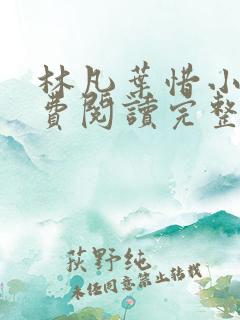 林凡葉惜小
費閱讀完整
荻野纯
未经同意禁止转载